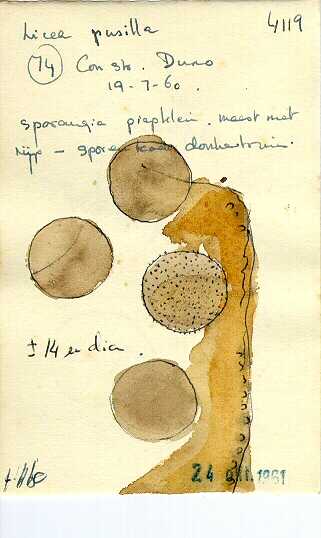 Licea pusilla 4119
74 Con sto. Duno
19-7-60.
sporangia piepklein. meest met
rijp - spore
± 14 u dia.
24 1961